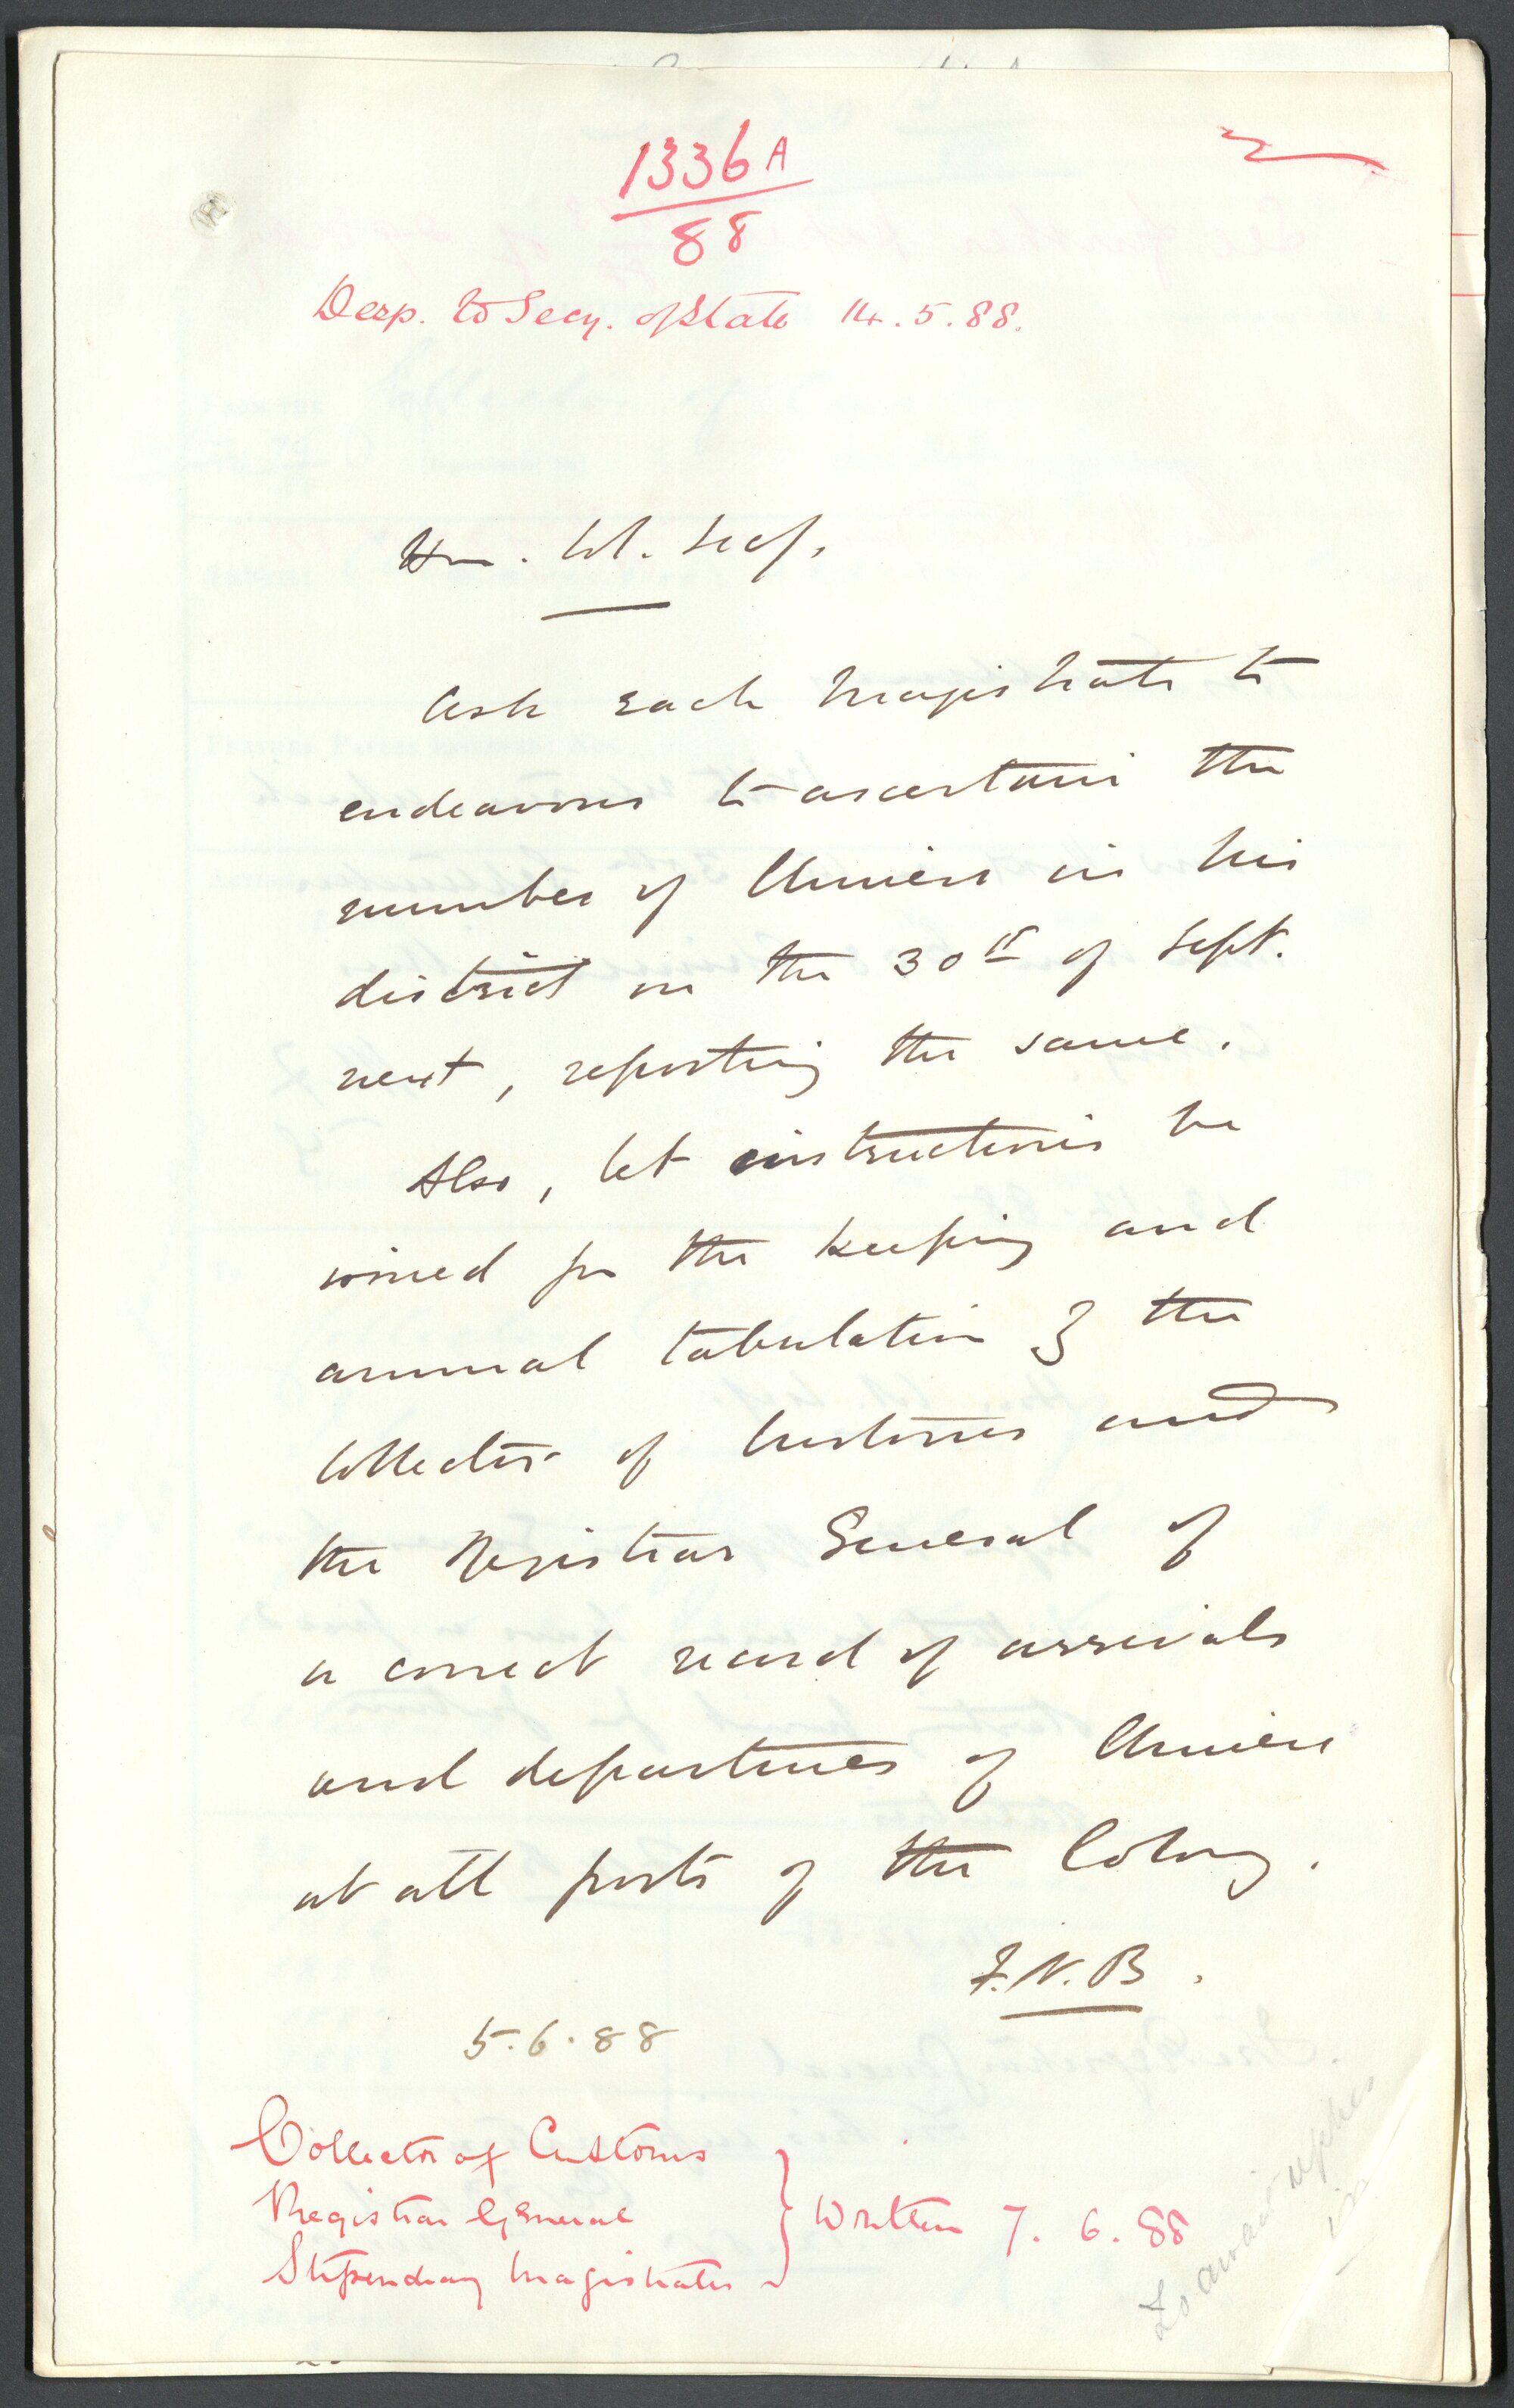 1336A
88
Desp. to Secy. of State 14.5.88.
Hon. Col. Secy.
Ask each Magistrate to
endeavour to ascertain the
number of Chinese in his
district on the 30th of Sept.
next, reporting the same.
Also, let instructions be
issued for the keeping and
annual tabulation by the
Collector of Customs and
the Registrar General of
a correct record of arrivals
and departures of Chinese
at all ports of the Colony.
F.N.B.
5.6.88
Collector of Customs
Registrar General
Stipendiary Magistrates } Written 7.6.88
To await replies